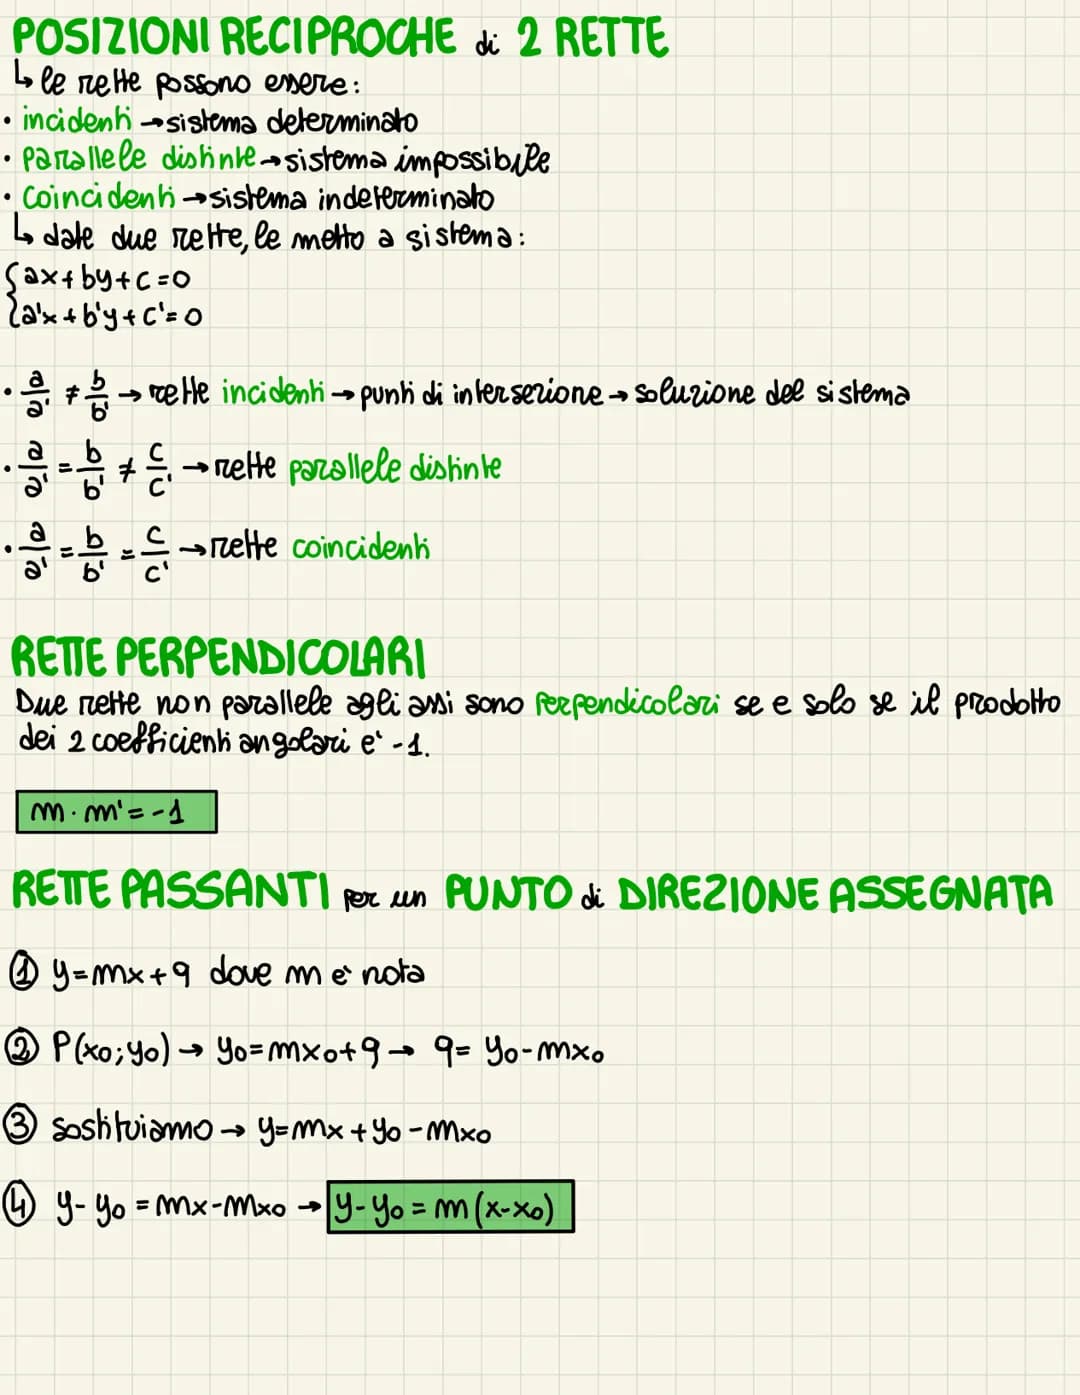 POSIZIONI RECIPROCHE di 2 RETTE
↳ le rette possono essere:
• incidenti → sistema determinato
• parallele distinte → sistema impossibile
• coincidenti → sistema indeterminato
↳ date due rette, le metto a sistema:
{ax + by + c = 0
{a'x + b'y + c' = 0
• a/a' ≠ b/b' → rette incidenti → punti di intersezione → soluzione del sistema
• a/a' = b/b' ≠ c/c' → rette parallele distinte
• a/a' = b/b' = c/c' → rette coincidenti
RETTE PERPENDICOLARI
Due rette non parallele agli assi sono perpendicolari se e solo se il prodotto
dei 2 coefficienti angolari e' -1.
m · m' = -1
RETTE PASSANTI per un PUNTO di DIREZIONE ASSEGNATA
① y=mx+q dove m è nota
② P(x₀;y₀) → y₀=mx₀+q → q= y₀-mx₀
③ sostituiamo → y=mx+y₀-mx₀
④ y-y₀ = mx-mx₀ → y-y₀ = m(x-x₀)